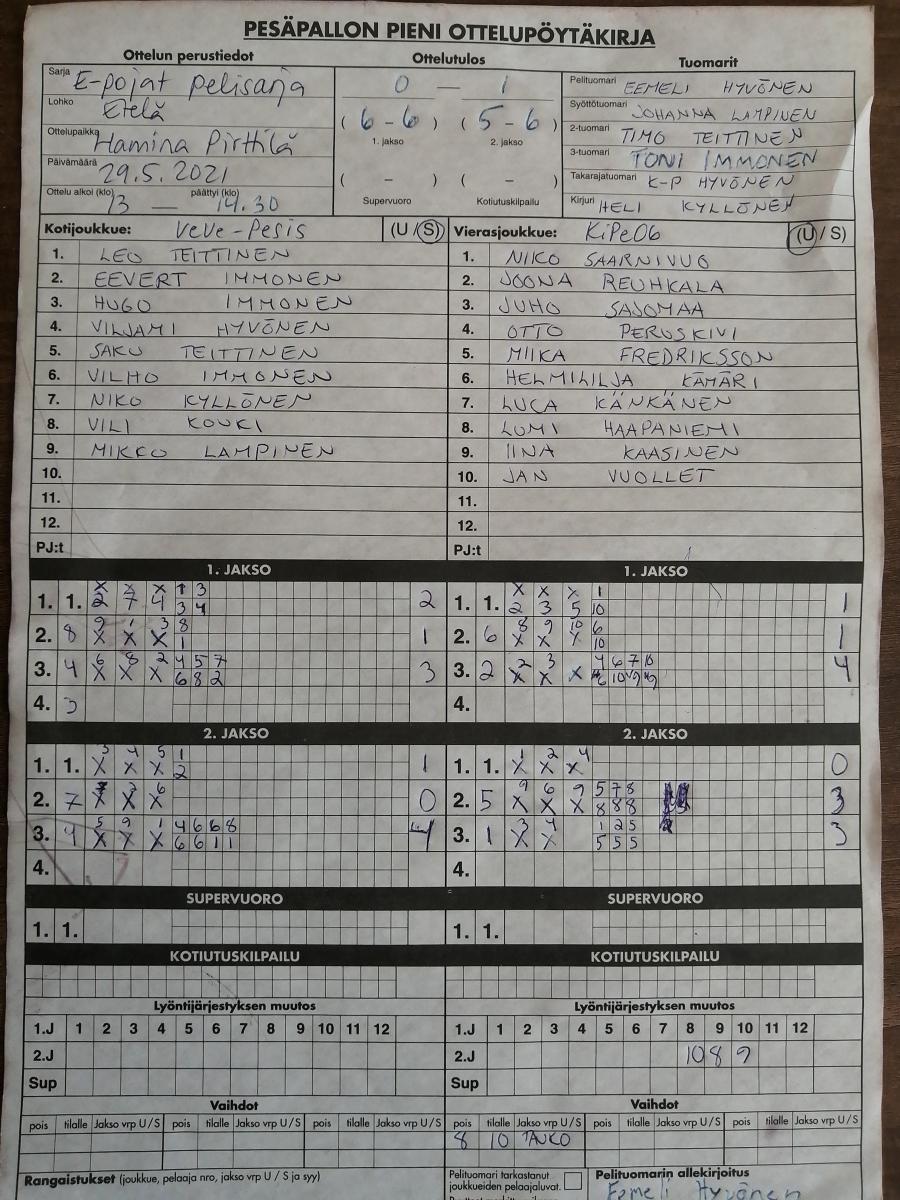 PESÄPALLON PIENI OTTELUPÖYTÄKIRJA
Ottelun perustiedot
Sarja E-pojat pelisarja
Lohko Etelä
Ottelupaikka Hamina Pirttilä
Päivämäärä 29.5.2021
Ottelu alkoi (klo) 13 — päättyi (klo) 14.30
Ottelutulos
0 — 1
(6 - 6) (5 - 6)
1. jakso 2. jakso
( - ) ( - )
Supervuoro Kotiutuskilpailu
Tuomarit
Pelituomari EEMELI HYVÖNEN
Syöttötuomari JOHANNA LAMPINEN
2-tuomari TIMO TEITTINEN
3-tuomari TONI IMMONEN
Takarajatuomari K-P HYVÖNEN
Kirjuri HELI KYLLÖNEN
Kotijoukkue: VeVe-Pesis (U / S)
1. LEO TEITTINEN
2. EEVERT IMMONEN
3. HUGO IMMONEN
4. VILJAMI HYVÖNEN
5. SAKU TEITTINEN
6. VILHO IMMONEN
7. NIKO KYLLÖNEN
8. VILI KOUKI
9. MIKKO LAMPINEN
10.
11.
12.
PJ:t
Vierasjoukkue: KiPe06 (U / S)
1. NIKO SAARNIVUO
2. JOONA REUHKALA
3. JUHO SAJOMAA
4. OTTO PERUSKIVI
5. MIIKA FREDRIKSSON
6. HELMILILJA KÄMÄRI
7. LUCA KÄNKÄNEN
8. LUMI HAAPANIEMI
9. IINA KAASINEN
10. JAN VUOLLET
11.
12.
PJ:t
1. JAKSO
x x x 1 3
1. 1. 2 7 4 3 4 2
9 1 3 8
2. 8 x x x 1 1
6 8 2 4 5 7
3. 4 x x x 6 8 2 3
4. 3
1. JAKSO
x x x 1
1. 1. 2 3 5 10 1
8 9 10 6
2. 6 x x x 10 1
2 3 4 6 7 10
3. 2 x x x 4
4.
2. JAKSO
3 4 5 1
1. 1. x x x 2 1
7 6
2. 7 x x x 0
5 9 1 4 6 6 8
3. 4 x x x 6 6 1 1 4
4.
2. JAKSO
1 2 4
1. 1. x x x 0
9 6 9 5 7 8
2. 5 x x x 8 8 8 3
3 4 1 2 5
3. 1 x x 5 5 5 3
4.
SUPERVUORO
1. 1.
SUPERVUORO
1. 1.
KOTIUTUSKILPAILU
KOTIUTUSKILPAILU
Lyöntijärjestyksen muutos
1.J 1 2 3 4 5 6 7 8 9 10 11 12
2.J
Sup
Lyöntijärjestyksen muutos
1.J 1 2 3 4 5 6 7 8 9 10 11 12
2.J 10 8 9
Sup
Vaihdot
pois tilalle Jakso vrp U / S pois tilalle Jakso vrp U / S pois tilalle Jakso vrp U / S
Vaihdot
pois tilalle Jakso vrp U / S pois tilalle Jakso vrp U / S pois tilalle Jakso vrp U / S
8 10 TAUKO
Rangaistukset (joukkue, pelaaja nro, jakso vrp U / S ja syy)
Pelituomari tarkastanut
joukkueiden pelaajaluvat.
Pelituomarin allekirjoitus
Eemeli Hyvönen